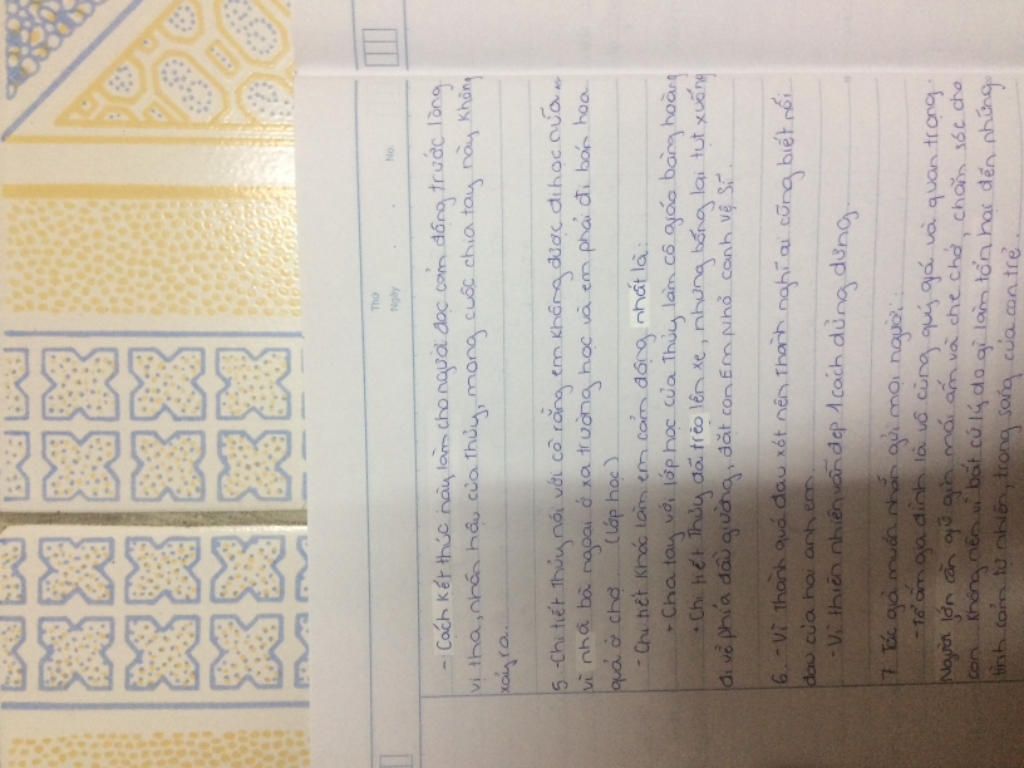 Thứ
Ngày . . No.
- Cách kết thúc này làm cho người đọc cảm động trước lòng
vị tha, nhân hậu của Thủy, mong cuộc chia tay này không
xảy ra.
5 - Chi tiết Thủy nói với cô rằng em không được đi học nữa
vì nhà bà ngoại ở xa trường học và em phải đi bán hoa
quả ở chợ (lớp học)
- Chi tiết khác làm em cảm động nhất là:
+ Chia tay với lớp học của Thủy làm cô giáo bàng hoàng
+ Chi tiết Thủy đã trèo lên xe, nhưng bỗng lại tụt xuống
đi về phía đầu giường, đặt con Em nhỏ cạnh Vệ Sĩ.
6. - Vì Thành quá đau xót nên Thành nghĩ ai cũng biết nỗi
đau của hai anh em
- Vì thiên nhiên vẫn đẹp 1 cách dửng dưng.
7 Tác giả muốn nhắn gửi mọi người:
- Tổ ấm gia đình là vô cùng quý giá và quan trọng.
Người lớn cần giữ gìn mái ấm và che chở, chăm sóc cho
con. Không nên vì bất cứ lý do gì làm tổn hại đến những
tình cảm tự nhiên, trong sáng của con trẻ.